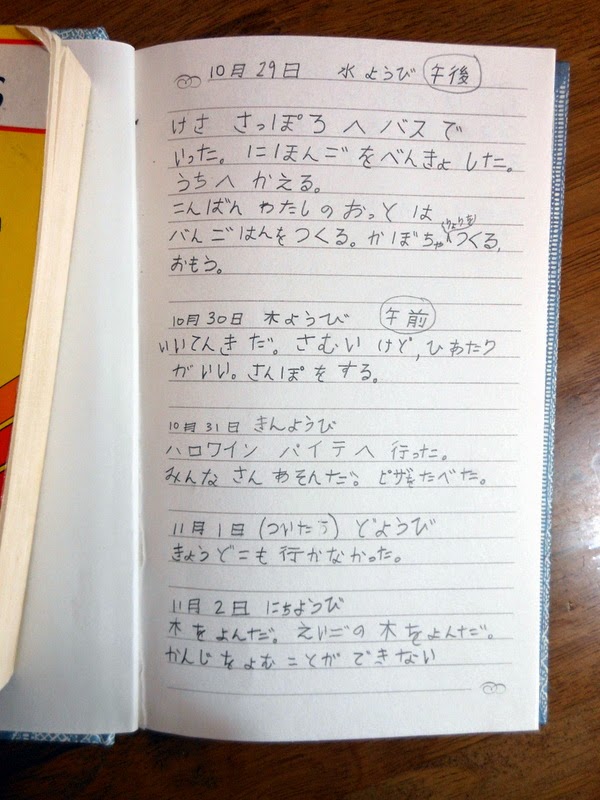 10月29日 水ようび 午後
けさ さっぽろ へ バス で
いった。 にほんごをべんきょ した。
うち へ かえる。
こんばん わたし の おっと は
バんごはんをつくる。かぼちゃりょりをつくる、
おもう。
10月30日 木ようび 午前
いいてんき だ。さむい けど, ひあたり
がいい。さんぽ をする。
10月31日 きんようび
ハロワイン パイテ へ 行った。
みんな さん あそんだ。ピザをたべた。
11月1日 (ついたち) どようび
きょう どこも 行かなかった。
11月2日 にちようび
木をよんだ。えいごの 木をよんだ。
かんじをよむ ことが できない